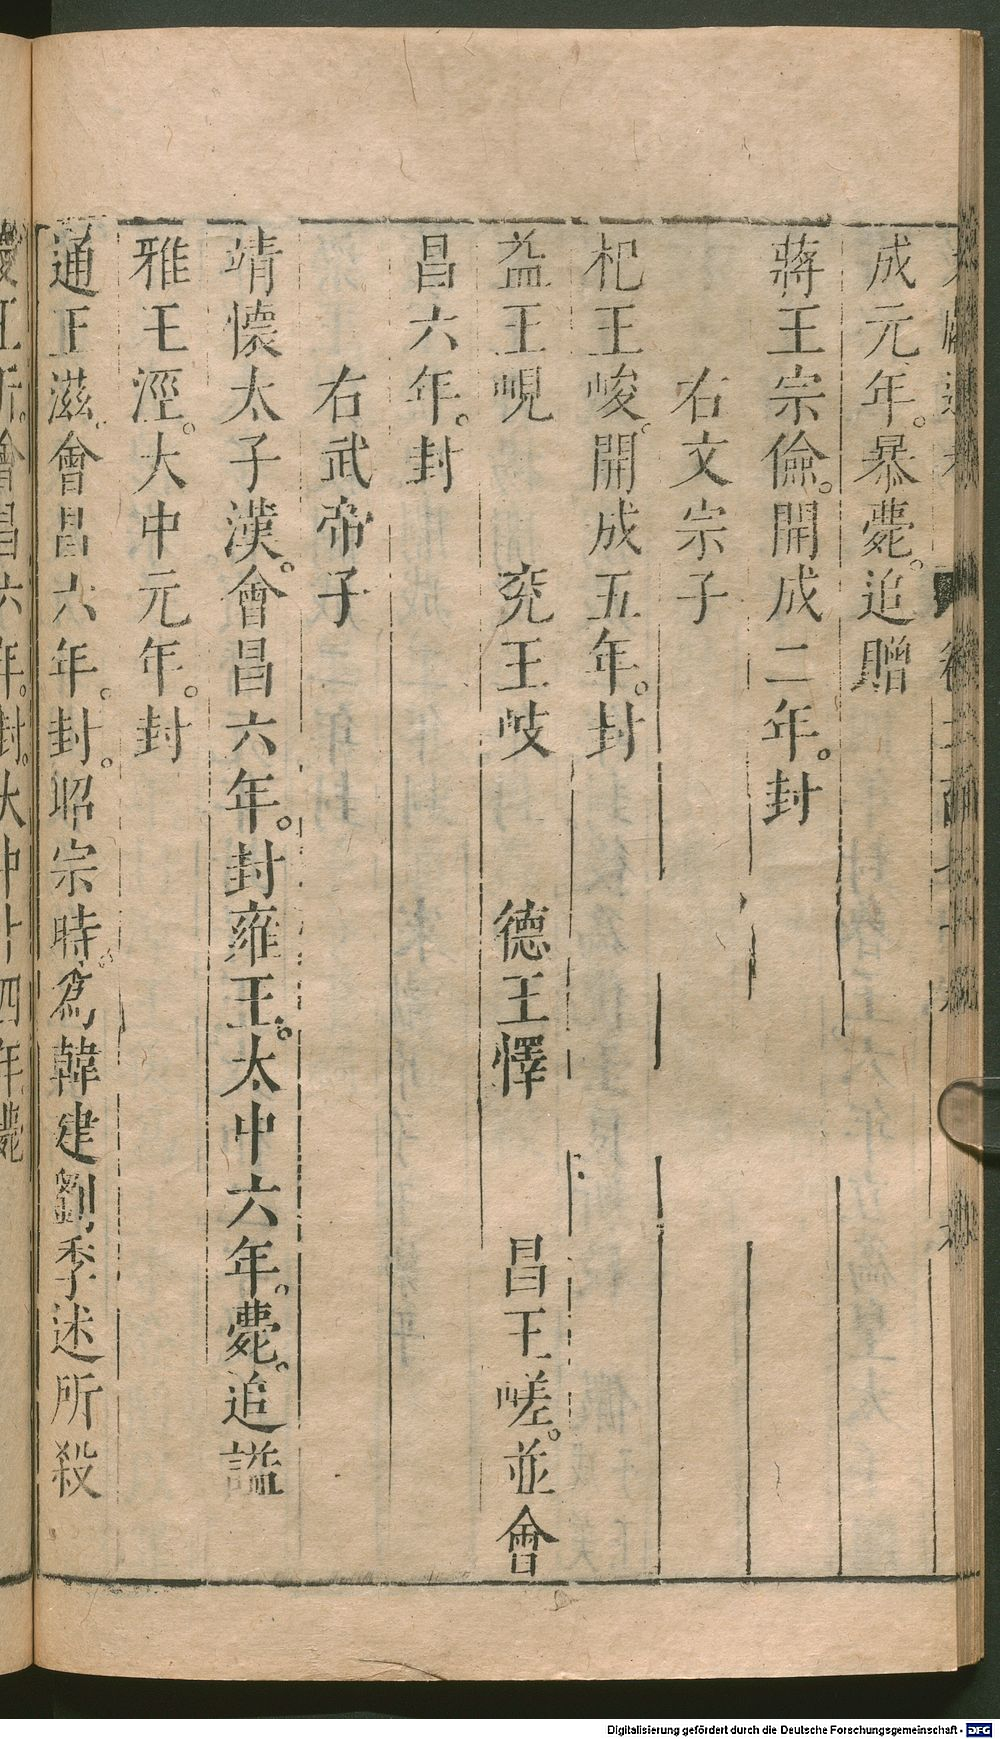 成元年。暴薨。追贈
蔣王宗儉。開成二年。封
右文宗子
杞王峻。開成五年。封
益王峴 兖王岐 德王㟧 昌王嵯。並會
昌六年。封
右武帝子
靖懷太子漢。會昌六年。封雍王。太中六年。薨。追諡
雅王涇。大中元年。封
通王滋。會昌六年。封。昭宗時。爲韓建劉季述所殺
王沂。會昌六年。封。大中十四年。薨
Digitalisierung gefördert durch die Deutsche Forschungsgemeinschaft - DFG